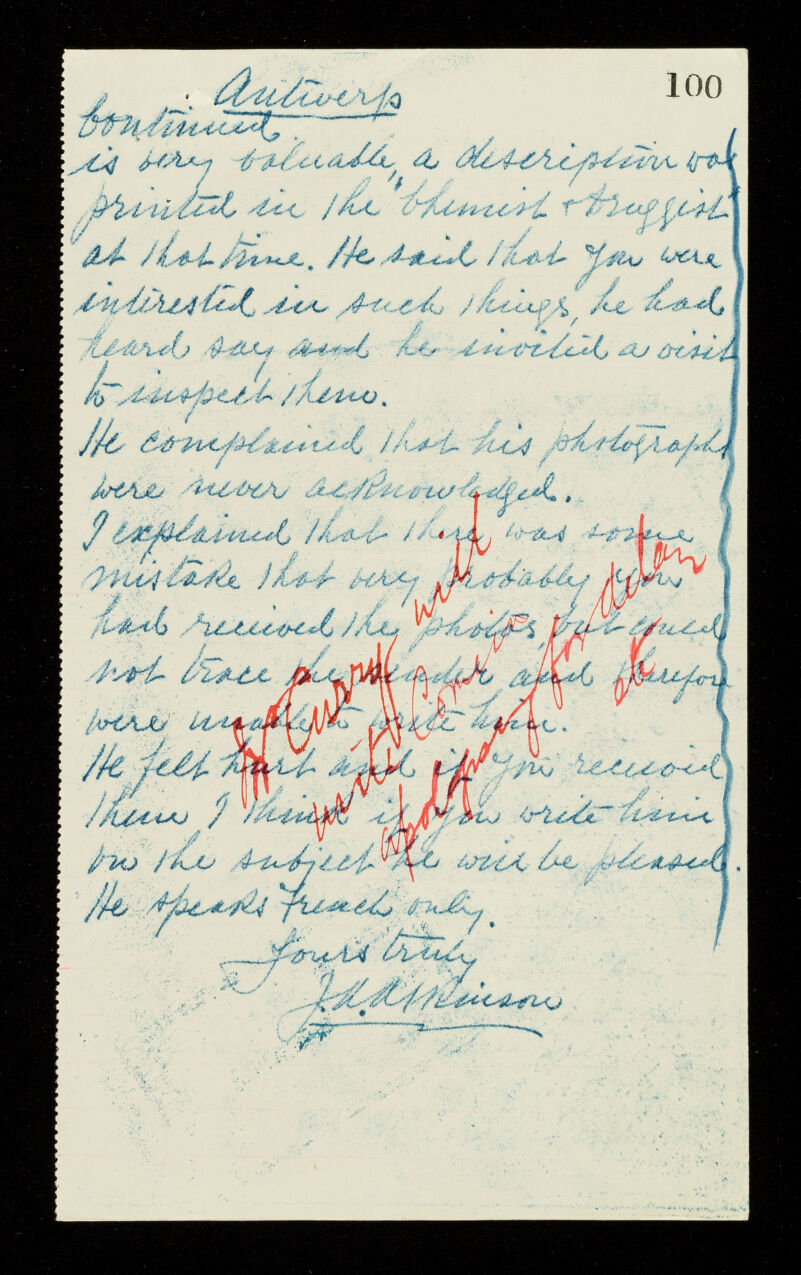 100
Antwerp
Continued
is very valuable, a description was
printed in the "Chemist & Druggist"
at that time. He said that you were
interested in such things, he had
heard say and he invited a visit
to inspect them.
He complained that his photographs
were never acknowledged.
I explained that there was some
mistake that very probably you
had received the photos, but could
not trace the sender and therefore
were unable to write him.
He felt hurt and if you received
them I think if you write him
on the subject he will be pleased.
He speaks French only.
Yours truly
Curry will
write
apologising for delay
etc